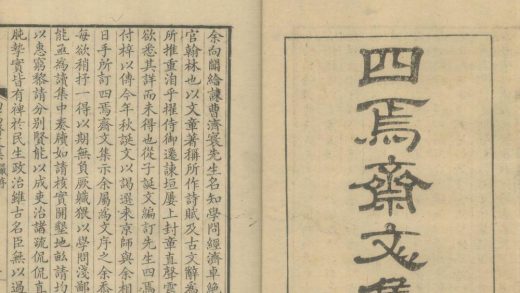 四焉齋文
余向聞給諫曹濟寰先生名知學問經濟卓絶
官翰林也以文章著稱所作詩賦及古文辭爲
所推重洎乎擢侍御遷諫垣屢上封章直聲
欲悉其詳而未得也從子誕文編訂先生四焉
付梓以傳今年秋誕文以謁選來京師與余相
日手所訂四焉齋文集示余屬爲文序之余忝
每欲稍抒一得以期無負厥職獨以學問淺鄙
能 爲讀集中奏牘如請核實開墾地畝請均
以惠窮黎請分別賢能以成吏治 疏侃侃直
肫摯實皆有裨於民生政治雖古名臣無以過